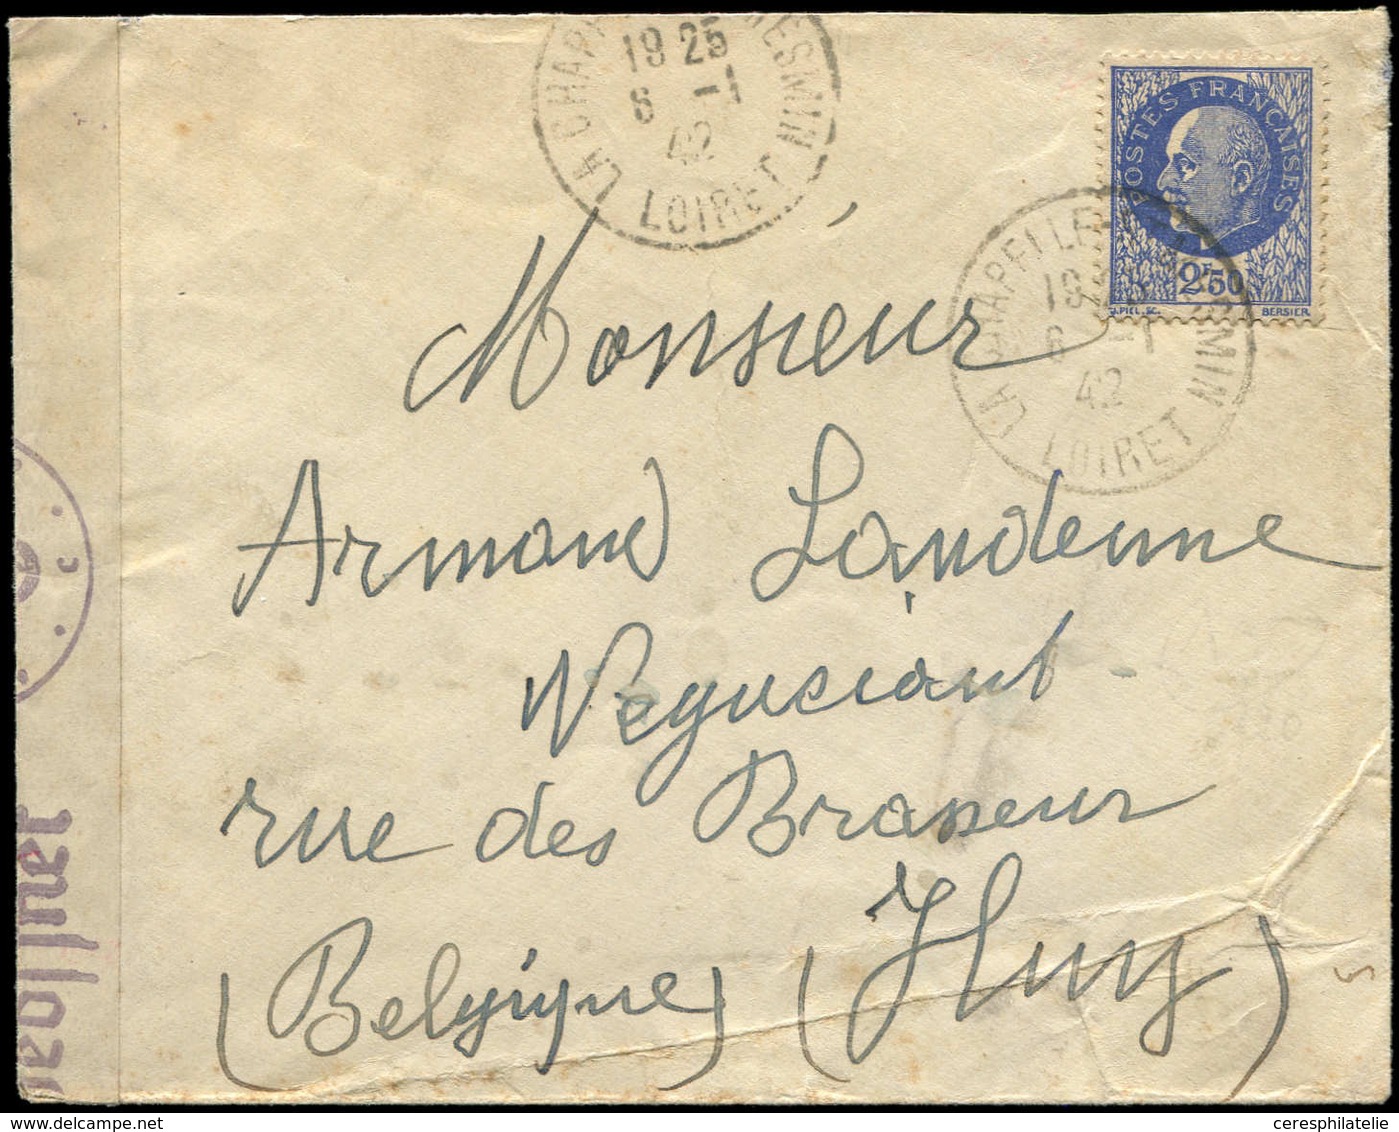 LA CHAP ESMIN
19 25
6 -1
42
LOIRET
POSTES FRANÇAISES
2F50
J.PIEL.SC. BERSIER
LA CHAPELLE ESMIN
19
6 -1
42
LOIRET
Monsieur
Armand Landenne
Negociant
rue des Brasseur
(Belgique) (Huy)
c
geöffnet
ceresphilatelie.com